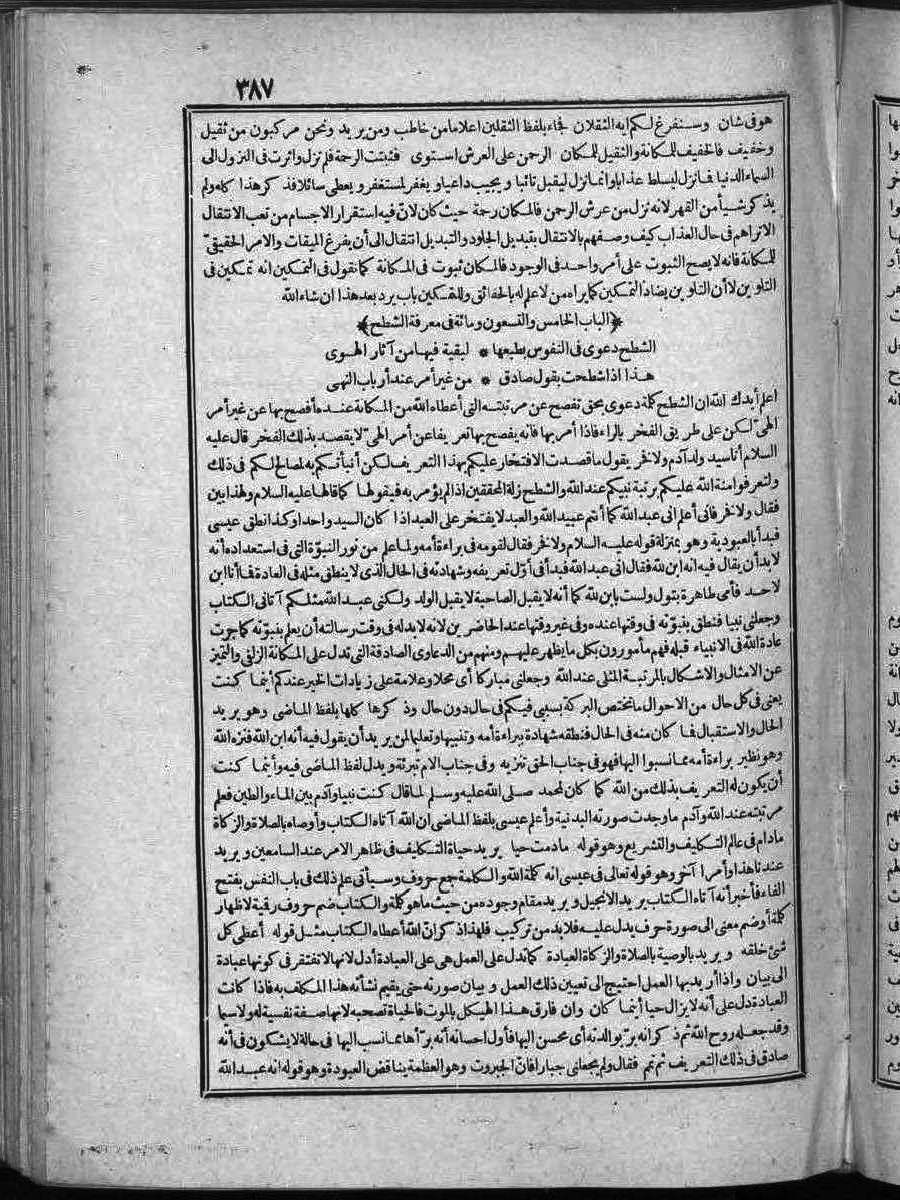 ٣٨٧
هو فى شان وسنفرغ لكم ايه الثقلان فجاء بلفظ الثقلين اعلاما من خاطب ومن يريد ونحن مركبون من ثقيل
وخفيف فالخفيف للمكانة والثقيل للمكان الرحمن على العرش استوى فثبتت الرحمة فلم نزل واثرت فى النزول الى
السماء الدنيا فما نزل ليسلط عذابا وانما نزل ليقبل تائبا ويجيب داعيا ويغفر لمستغفر ويعطى سائلا فذكر هذا كله ولم
يذكر شيأ من القهر لانه نزل من عرش الرحمن فالمكان رحمة حيث كان لانّ فيه استقرار الاجسام من تعب الانتقال
الا تراهم فى حال العذاب كيف وصفهم بالانتقال بتبديل الجلود والتبديل انتقال الى أن يفرغ الميقات والامر الحقيقىّ
للمكانة فانه لا يصح الثبوت على أمر واحد فى الوجود فالمكان ثبوت فى المكانة كما نقول فى التمكين انه تمكين فى
التلوين لا أن التلوين يضاد التمكين كما يراه من لا علم له بالحقائق وللتمكين باب يرد بعد هذا ان شاء الله
﴿الباب الخامس والتسعون ومائة فى معرفة الشطح﴾
الشطح دعوى فى النفوس بطبعها * لبقية فيها من آثار الهوى
هذا اذا شطحت بقول صادق * من غير أمر عند أرباب النهى
اعلم أيدك الله ان الشطح كلمة دعوى بحق تفصح عن مرتبته التى أعطاه الله من المكانة عنده أفصح بها عن غير أمر
الهىّ لكن على طريق الفخر بالراء فاذا أمر بها فانه يفصح بها تعريفا عن أمر الهىّ لا يقصد بذلك الفخر قال عليه
السلام أنا سيد ولد آدم ولا فخر يقول ما قصدت الافتخار عليكم بهذا التعريف لكن أنبأتكم به لمصالح لكم فى ذلك
ولتعرفوا منة الله عليكم برتبة نبيكم عند الله والشطح زلة المحققين اذا لم يؤمر به فيقولها كما قالها عليه السلام ولهذا بين
فقال ولا فخر فانى أعلم انى عبد الله كما أنتم عبيد الله والعبد لا يفتخر على العبد اذا كان السيد واحدا وكذا نطق عيسى
فبدأ بالعبودية وهو بمنزلة قوله عليه السلام ولا فخر فقال لقومه فى براءة أمه ولما علم من نور النبوّة التى فى استعداده أنه
لا بد أن يقال فيه انه ابن الله فقال انى عبد الله فبدأ فى أوّل تعريفه وشهادته فى الحال الذى لا ينطق مثله فى العادة فما أنا ابن
لاحد فأمى طاهرة بتول ولست بابن لله كما أنه لا يقبل الصاحبة لا يقبل الولد ولكنى عبد الله مثلكم آتانى الكتاب
وجعلنى نبيا فنطق بنبوّته فى وقتها عنده وفى غير وقتها عند الحاضرين لانه لا بد له فى وقت رسالته أن يعلم بنبوّته كما جرت
عادة الله فى الانبياء قبله فهم مأمورون بكل ما يظهر عليهم ومنهم من الدعاوى الصادقة التى تدل على المكانة الزلفى والتميز
عن الامثال والاشكال بالمرتبة المثلى عند الله وجعلنى مباركا أى محلا وعلامة على زيادات الخير عندكم أينما كنت
يعنى فى كل حال من الاحوال ما تختص البركة بسببى فيكم فى حال دون حال وذكرها كلها بلفظ الماضى وهو يريد
الحال والاستقبال فما كان منه فى الحال فنطقه شهادة ببراءة أمه وتنبيها وتعليما لمن يريد أن يقول فيه أنه ابن الله فنزه الله
وهو نظير براءة أمه مما نسبوا اليها فهو فى جناب الحق تنزيه وفى جناب الام تبرئة ويدل لفظ الماضى فيه وأينما كنت
أن يكون له التعريف بذلك من الله كما كان لمحمد صلى الله عليه وسلم لما قال كنت نبيا وآدم بين الماء والطين فعلم
مرتبته عند الله وآدم ما وجدت صورته البدنية وأعلم عيسى بلفظ الماضى ان الله آتاه الكتاب وأوصاه بالصلاة والزكاة
مادام فى عالم التكليف والتشريع وهو قوله مادمت حيا يريد حياة التكليف فى ظاهر الامر عند السامعين ويريد
عندنا هذا وأمرا آخر وهو قوله تعالى فى عيسى انه كلمة الله والكلمة جمع حروف وسيأتى علم ذلك فى باب النفس بفتح
الفاء فأخبر أنه آتاه الكتاب يريد الانجيل ويريد مقام وجوده من حيث ما هو كلمة والكتاب ضم حروف رقية لاظهار
كلمة أو ضم معنى الى صورة حرف يدل عليه فلا بد من تركيب فلهذا ذكر انّ الله أعطاه الكتاب مثل قوله أعطى كل
شئ خلقه ويريد بالوصية بالصلاة والزكاة العبادة كما تدل على العمل هى على العبادة أدل لانها لا تفتقر فى كونها عبادة
الى بيان واذا أريد بها العمل احتيج الى تعيين ذلك العمل وبيان صورته حتى يقيم نشأته هذا المكلف به فاذا كانت
العبادة دل على أنه لا يزال حيا أينما كان وان فارق هذا الهيكل بالموت فالحياة تصحبه لانها صفة نفسية له ولا سيما
وقد جعله روح الله ثم ذكر انه بر بوالدته أى محسن اليها فأول احسانه أنه برّأها مما نسب اليها فى حالة لا يشكون فى أنه
صادق فى ذلك التعريف ثم تمم فقال ولم يجعلنى جبارا فانّ الجبروت وهو العظمة يناقض العبودة وهو قوله انه عبد الله